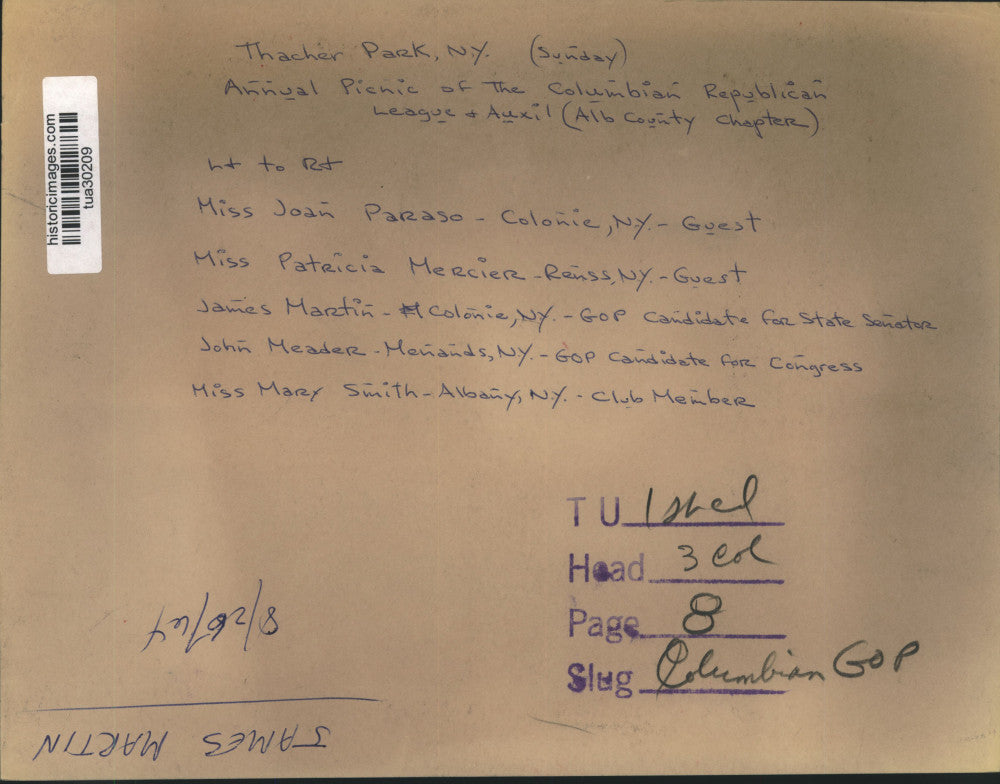 Thacher Park, N.Y. (Sunday)
Annual Picnic of The Columbian Republican
League & Auxil (Alb County Chapter)
Lt to Rt
Miss Joan Paraso - Colonie, N.Y. - Guest
Miss Patricia Mercier - Renss, N.Y. - Guest
James Martin - Colonie, N.Y. - GOP Candidate for State Senator
John Meader - Menands, N.Y. - GOP Candidate for Congress
Miss Mary Smith - Albany, N.Y. - Club Member
historicimages.com
tua30209
T U
Head 3 col
Page 8
Slug Columbian GOP
8/26/64
JAMES MARTIN